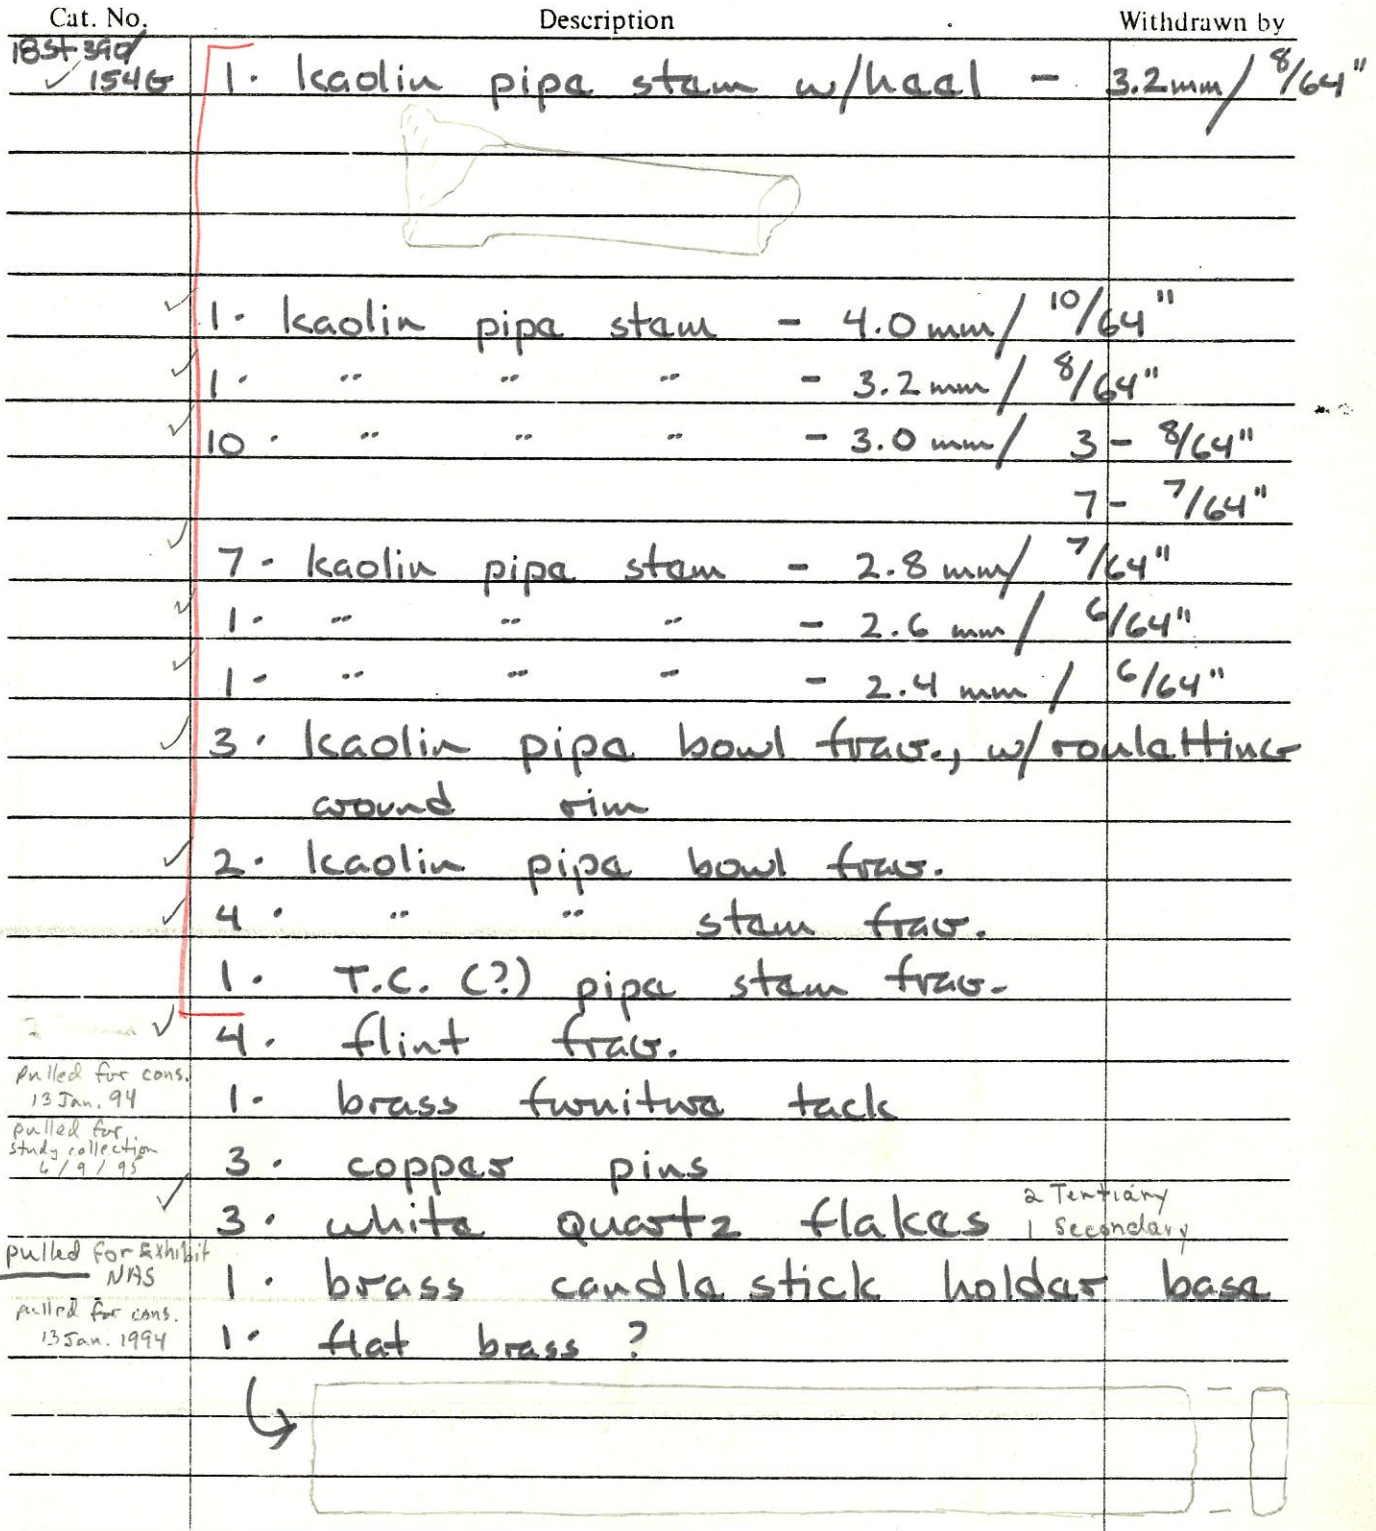 Cat. No. Description Withdrawn by
18St 390/
✓ 154G 1. kaolin pipe stem w/heel - 3.2mm/ 8/64"
✓ 1. kaolin pipe stem - 4.0mm/ 10/64"
✓ 1. " " " - 3.2mm/ 8/64"
✓ 10. " " " - 3.0mm/ 3 - 8/64"
7 - 7/64"
✓ 7. kaolin pipe stem - 2.8mm/ 7/64"
✓ 1. " " " - 2.6mm/ 6/64"
✓ 1. " " " - 2.4mm/ 6/64"
✓ 3. kaolin pipe bowl frag., w/rouletting
around rim
✓ 2. kaolin pipe bowl frag.
✓ 4. " " stem frag.
1. T.C. (?) pipe stem frag.
✓ 4. flint frag.
pulled for cons.
13 Jan. 94 1. brass furniture tack
pulled for
study collection
6/9/95 3. copper pins
✓ 3. white quartz flakes 2 Tertiary
1 Secondary
pulled for Exhibit
NAS 1. brass candle stick holder base
pulled for cons.
13 Jan. 1994 1. flat brass ?